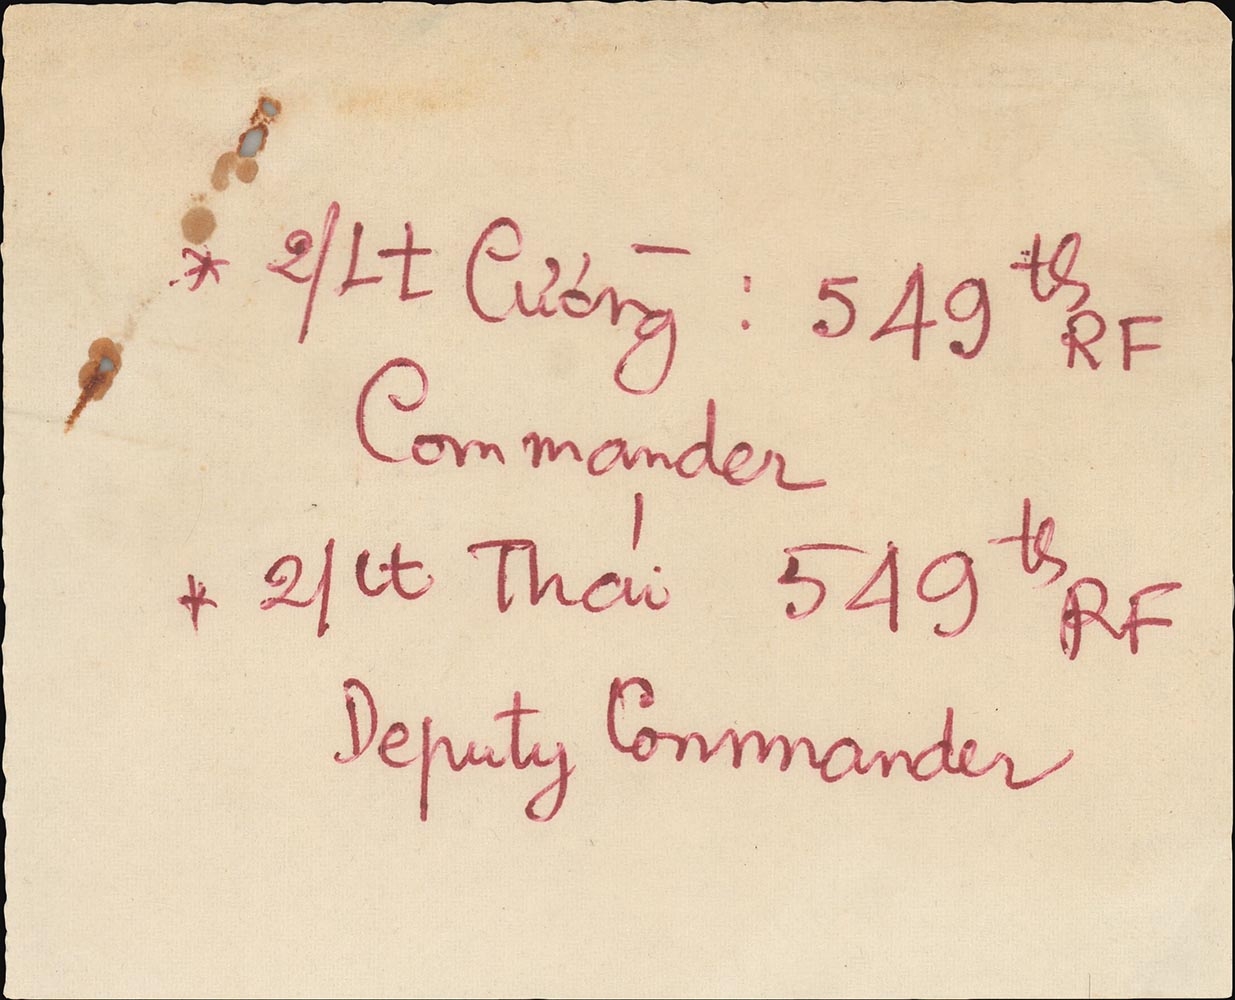 * 2/Lt Cường : 549th RF
Commander
* 2/Lt Thái 549th RF
Deputy Commander